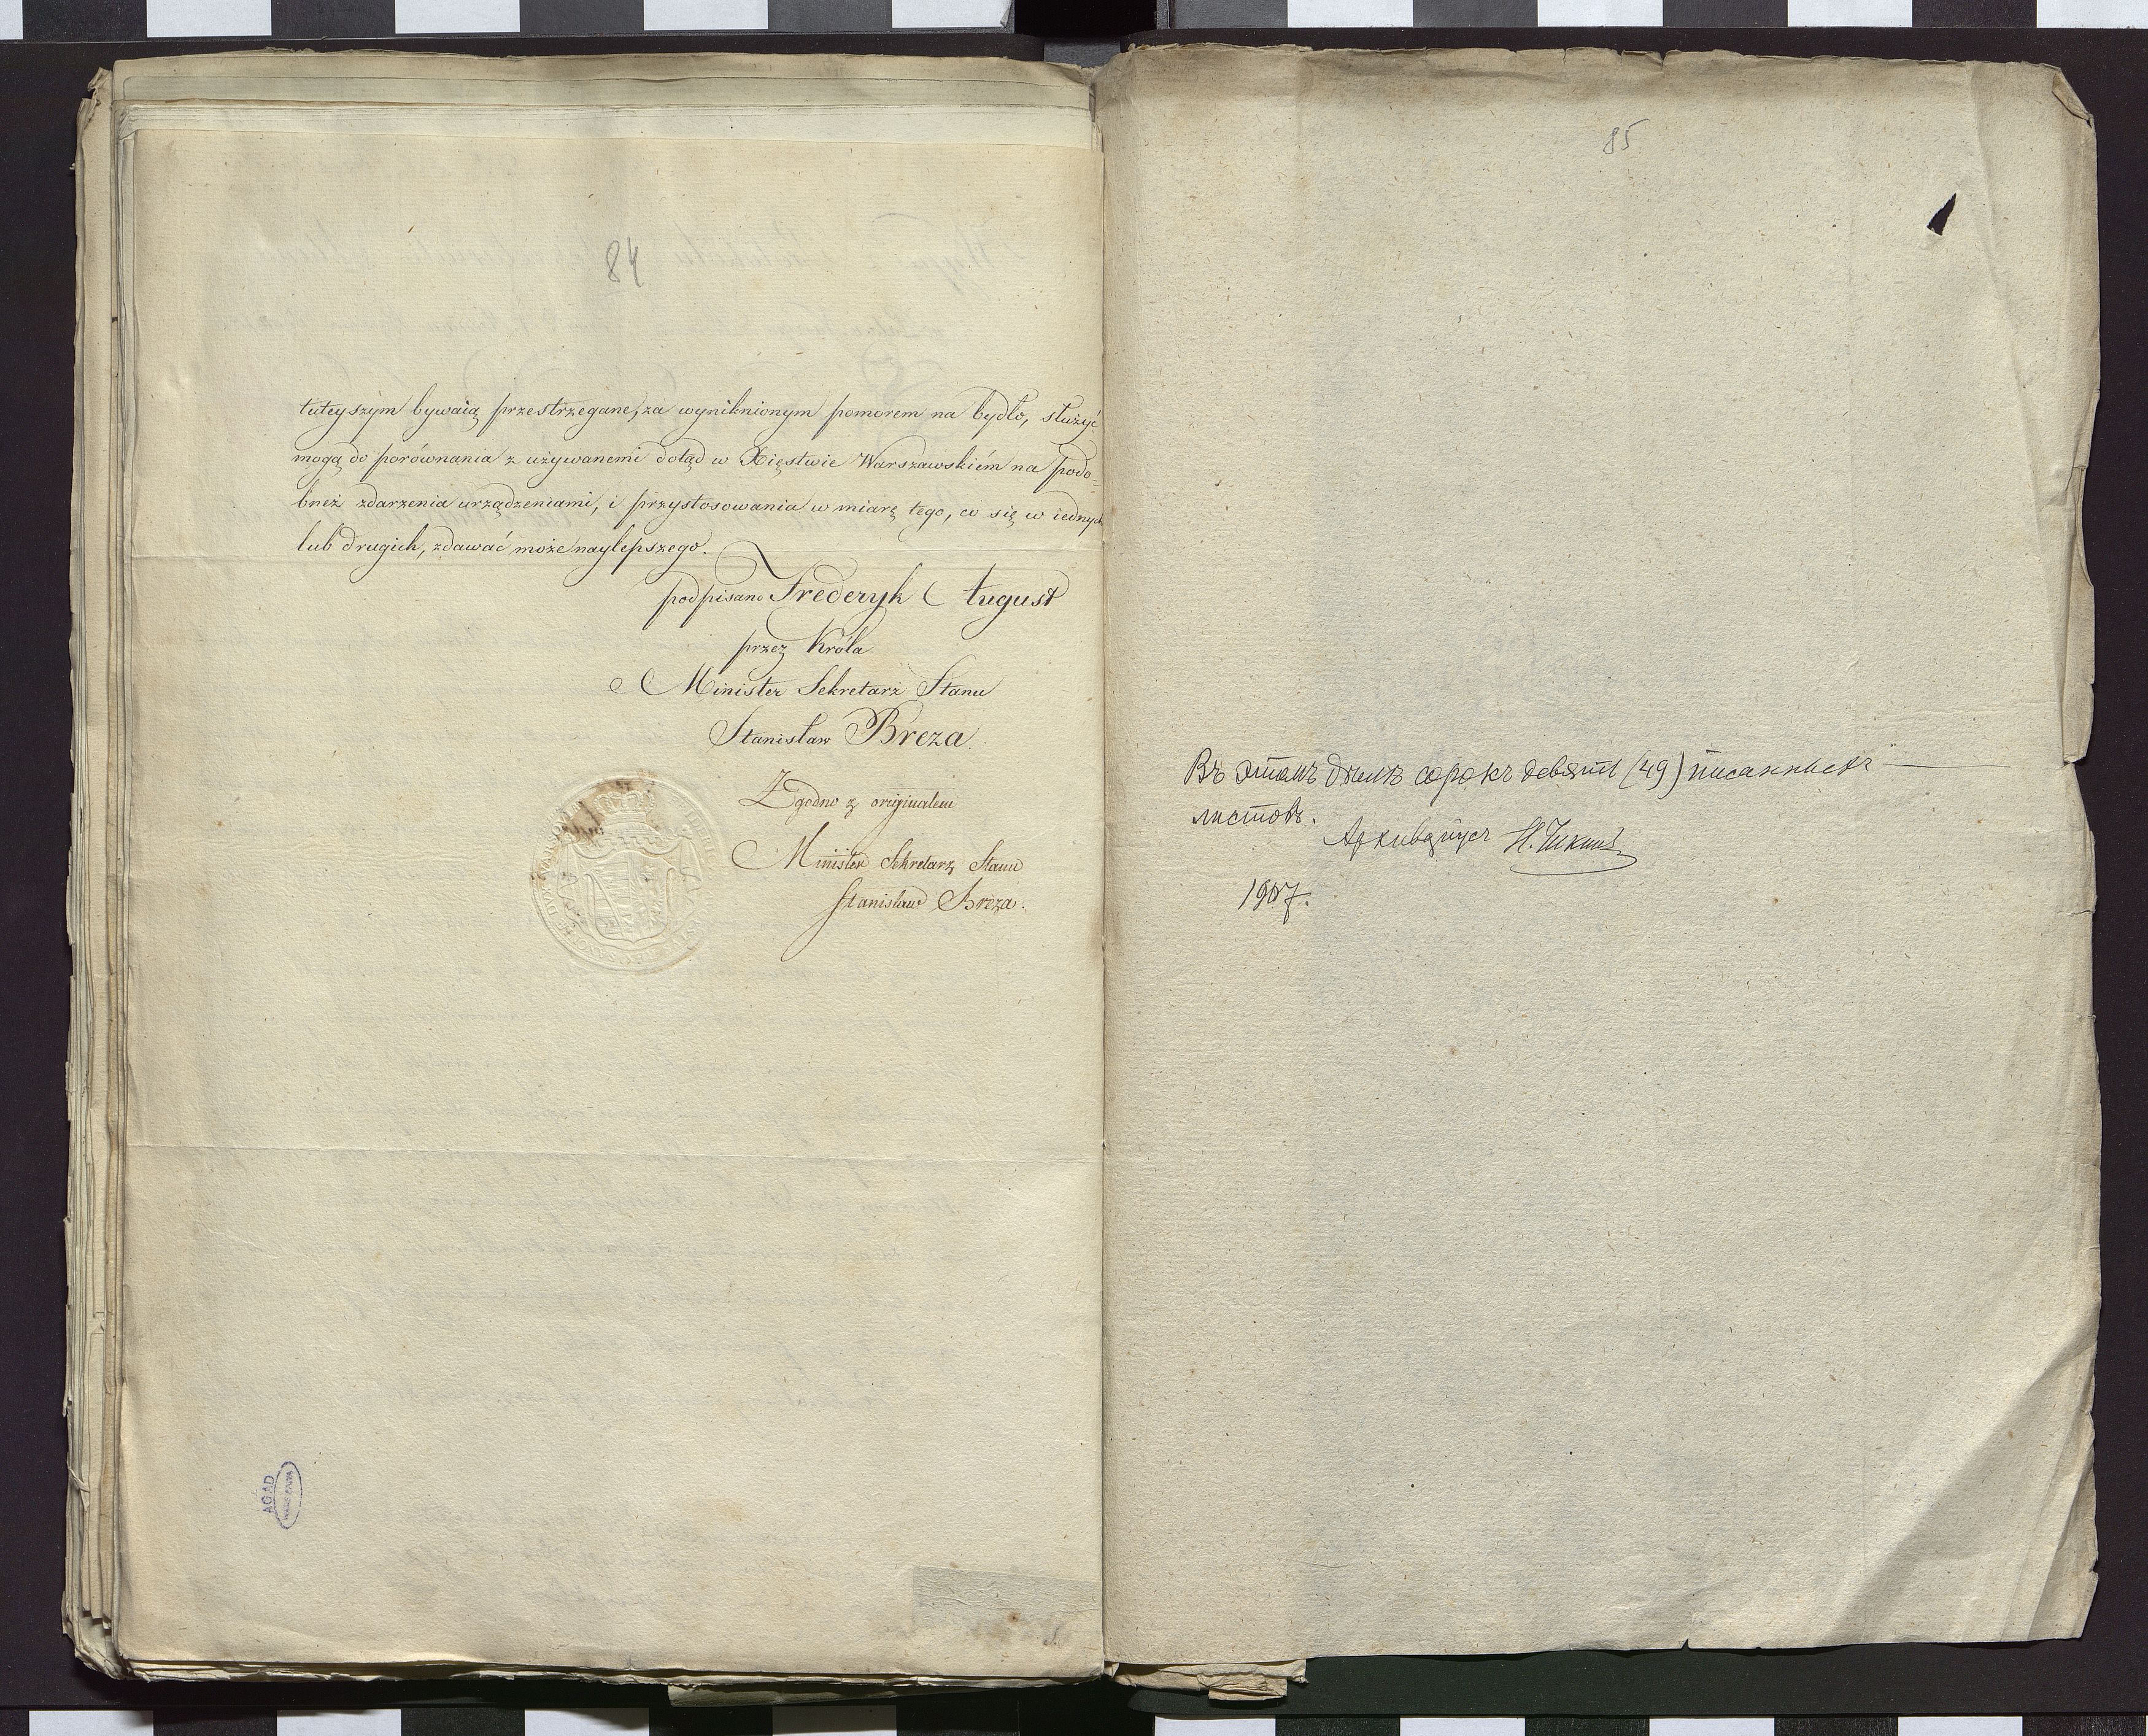 84
tuteyszym bywaią przestrzegane, za wyniknionym pomorem na bydło, służyć
mogą do porównania z używanemi dotąd w Xięstwie Warszawskiém na podo-
bneż zdarzenia urządzeniami, i przystosowania w miarę tego, co się w iednych
lub drugich, zdawać może naylepszego.
podpisano Frederyk August
przez Króla
Minister Sekretarz Stanu
Stanisław Breza.
Zgodno z originałem
Minister Sekretarz Stanu
Stanisław Breza.
AGAD
85
Въ этомъ дѣлѣ сорокъ девять (49) писанныхъ
листовъ.
Архиваріусъ
1907.